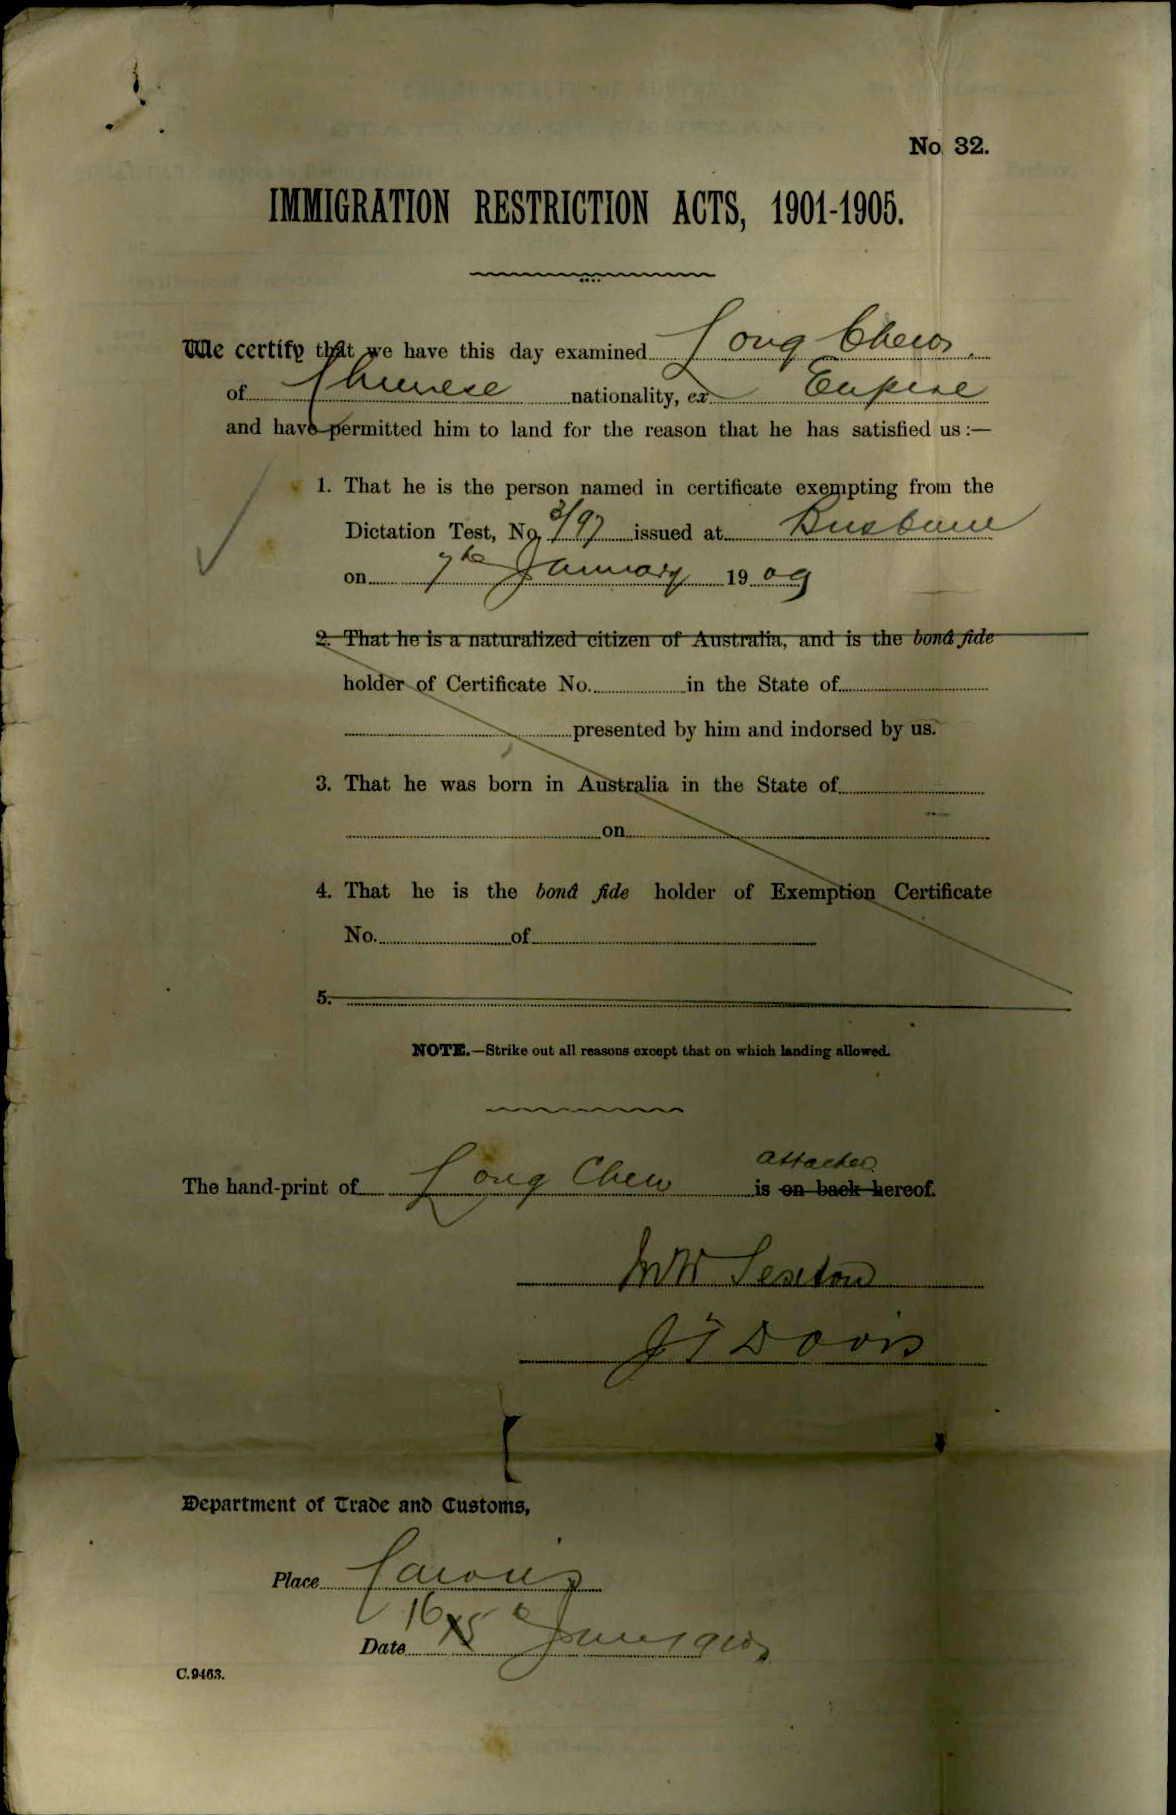 No. 32.
IMMIGRATION RESTRICTION ACTS, 1901-1905.
We certify that we have this day examined Long Chew.
of Chinese nationality, ex Empire
and have permitted him to land for the reason that he has satisfied us :—
1. That he is the person named in certificate exempting from the
Dictation Test, No. 3/97 issued at Brisbane
on 7th January 1909
2. That he is a naturalized citizen of Australia, and is the bonâ fide
holder of Certificate No. in the State of
presented by him and indorsed by us.
3. That he was born in Australia in the State of
on
4. That he is the bonâ fide holder of Exemption Certificate
No. of
5.
NOTE.—Strike out all reasons except that on which landing allowed.
attached
The hand-print of Long Chew is on back hereof.
W Sexton
J T Davis
Department of Trade and Customs,
Place Cairns
Date 16 15 June 1910
C.9463.